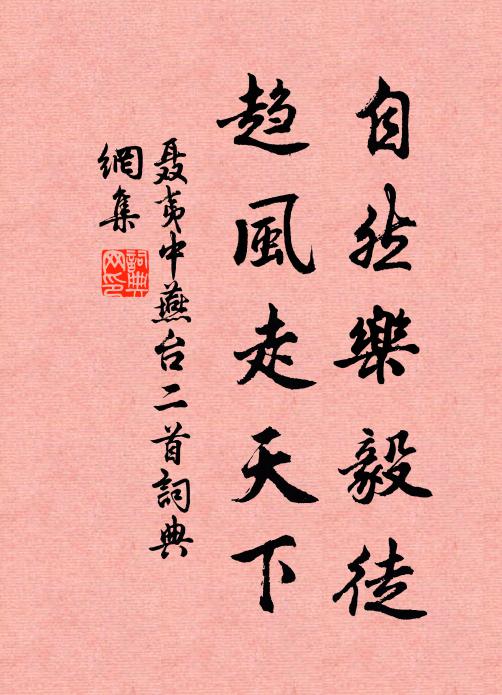 自然樂毅徒
趋風走天下
聂夷中燕台二首詞典
網集
詞典
网印